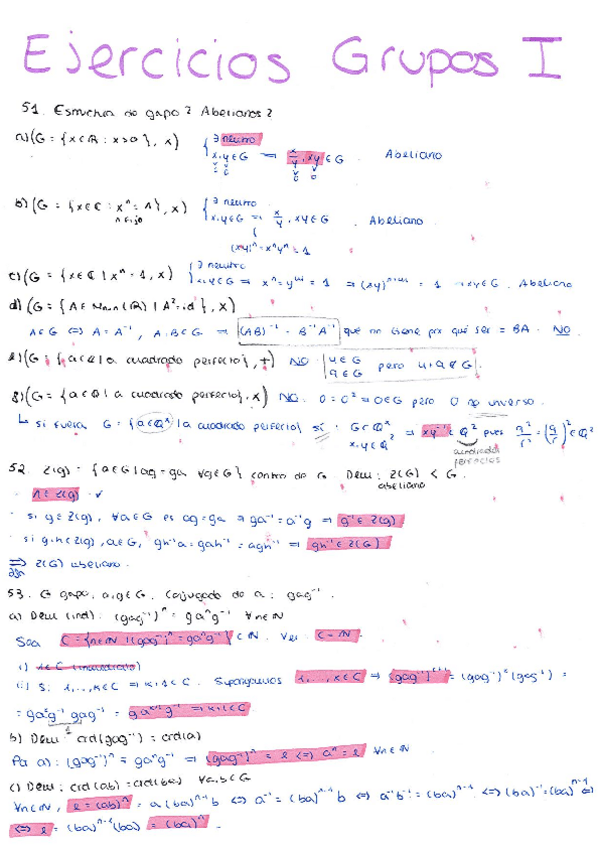 Ejercicios Grupos I
51. Estructura de grupo? Abelianos?
a) (G = {x∈ℝ : x>0}, x) { ∃ neutro
x,y∈G ⇒ x/y, xy∈G. Abeliano
b) (G = {x∈ℂ : xⁿ = 1}, x) { ∃ neutro
n fijo x,y∈G ⇒ x/y, xy∈G. Abeliano
(xy)ⁿ = xⁿyⁿ = 1
c) (G = {x∈ℂ | xⁿ = 1, x) { ∃ neutro
x,y∈G ⇒ xⁿ = yᵐ = 1 ⇒ (xy)ⁿᵐ = 1 ⇒ xy∈G. Abeliano
d) (G = {A∈Mₙₓₙ(ℝ) | A² = id}, x)
A∈G ⇔ A = A⁻¹, A,B∈G ⇒ (AB)⁻¹ = B⁻¹A⁻¹ que no tiene por qué ser = BA. NO
(G = {a∈ℚ | a cuadrado perfecto}, +) NO. 4∈G
9∈G pero 4+9∉G
g) (G = {a∈ℚ | a cuadrado perfecto}, x) NO. 0 = 0² ⇒ 0∈G pero 0 no inverso.
↳ si fuera G = {a∈ℚ* | a cuadrado perfecto} sí: G⊂ℚ*
x,y∈ℚ² ⇒ xy⁻¹∈ℚ² pues q²/r² = (q/r)²∈ℚ²
cuadrados
perfectos
52. Z(G) = {a∈G | ag = ga ∀g∈G} centro de G. Dem: Z(G) < G.
abeliano
· 1∈Z(G) · ✓
· si g∈Z(G), ∀a∈G es ag = ga ⇒ ga⁻¹ = a⁻¹g ⇒ g⁻¹∈Z(G)
· si g,h∈Z(G), a∈G, gh⁻¹a = gah⁻¹ = agh⁻¹ ⇒ gh⁻¹∈Z(G)
⇒ Z(G) abeliano.
53. G grupo, a,g∈G. Conjugado de a: gag⁻¹.
a) Dem (ind): (gag⁻¹)ⁿ = gaⁿg⁻¹ ∀n∈ℕ
Sea C = {n∈ℕ | (gag⁻¹)ⁿ = gaⁿg⁻¹} ⊂ℕ. Ver C = ℕ.
i) 1∈C (inmediato)
ii) Si 1,...,k∈C ⇒ k+1∈C. Supongamos 1,...,k∈C ⇒ (gag⁻¹)ᵏ⁺¹ = (gag⁻¹)ᵏ(gag⁻¹) =
= gaᵏg⁻¹gag⁻¹ = gaᵏ⁺¹g⁻¹ ⇒ k+1∈C
b) Dem: ord(gag⁻¹) = ord(a)
Por a): (gag⁻¹)ⁿ = gaⁿg⁻¹ ⇒ (gag⁻¹)ⁿ = e ⇔ aⁿ = e ∀n∈ℕ
c) Dem: ord(ab) = ord(ba) ∀a,b∈G
∀n∈ℕ, e = (ab)ⁿ = a(ba)ⁿ⁻¹b ⇔ a⁻¹ = (ba)ⁿ⁻¹b ⇔ a⁻¹b⁻¹ = (ba)ⁿ⁻¹ ⇔ (ba)⁻¹ = (ba)ⁿ⁻¹ ⇔
⇔ e = (ba)ⁿ⁻¹(ba) = (ba)ⁿ.